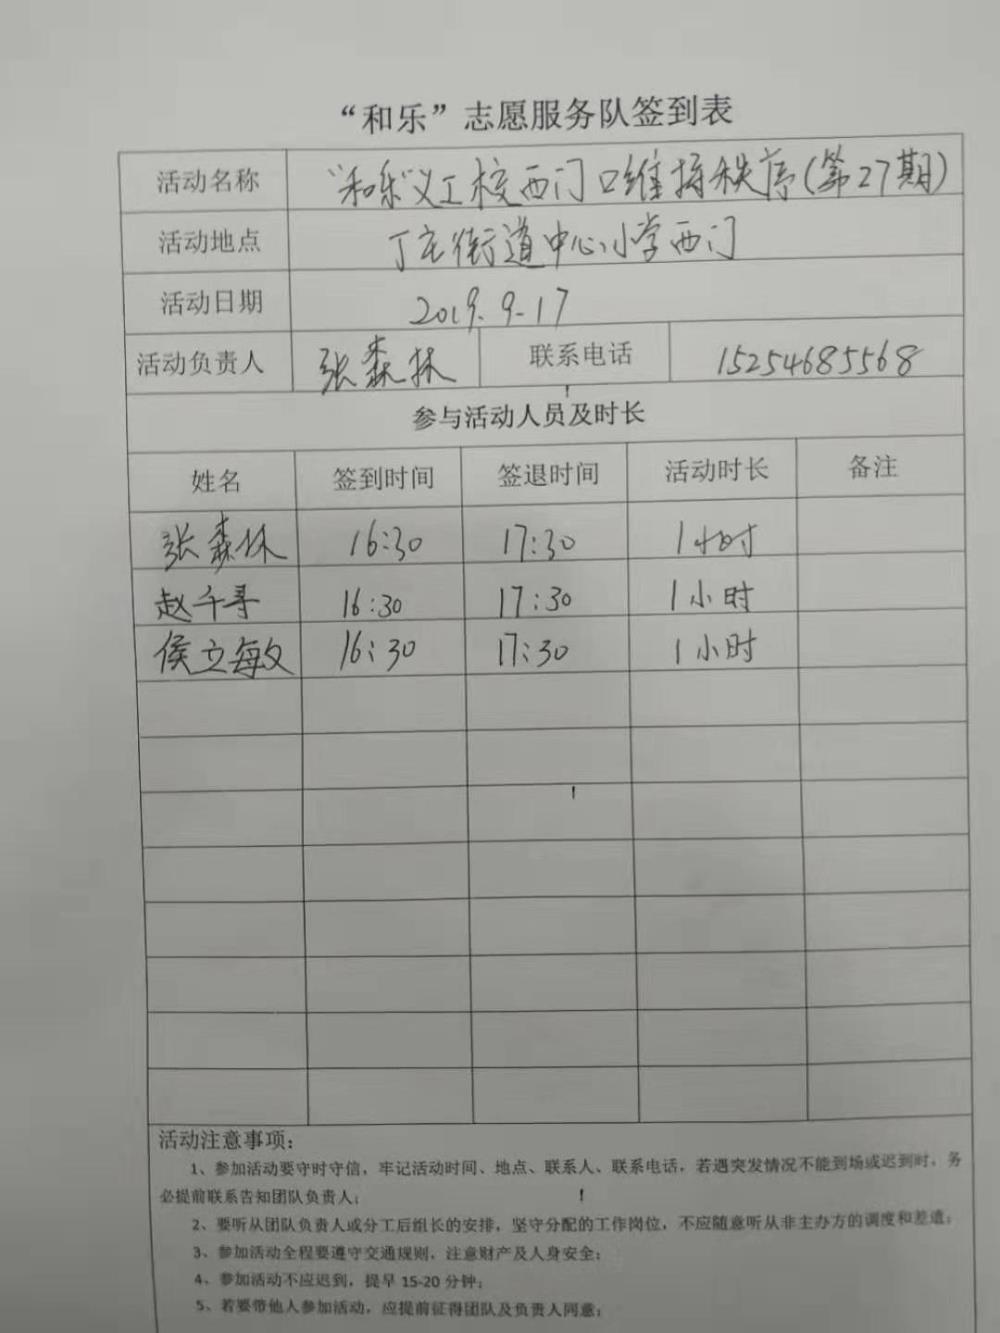 “和乐”志愿服务队签到表
活动名称 “和乐”义工校西门口维持秩序(第27期)
活动地点 丁庄街道中心小学西门
活动日期 2019.9.17
活动负责人 张森林 联系电话 15254685568
参与活动人员及时长
姓名 签到时间 签退时间 活动时长 备注
张森林 16:30 17:30 1小时
赵千寻 16:30 17:30 1小时
侯立敏 16:30 17:30 1小时
活动注意事项：
1、参加活动要守时守信，牢记活动时间、地点、联系人、联系电话，若遇突发情况不能到场或迟到时，务
必提前联系告知团队负责人；
2、要听从团队负责人或分工后组长的安排，坚守分配的工作岗位，不应随意听从非主办方的调度和差遣；
3、参加活动全程要遵守交通规则，注意财产及人身安全；
4、参加活动不应迟到，提早 15-20 分钟；
5、若要带他人参加活动，应提前征得团队及负责人同意；